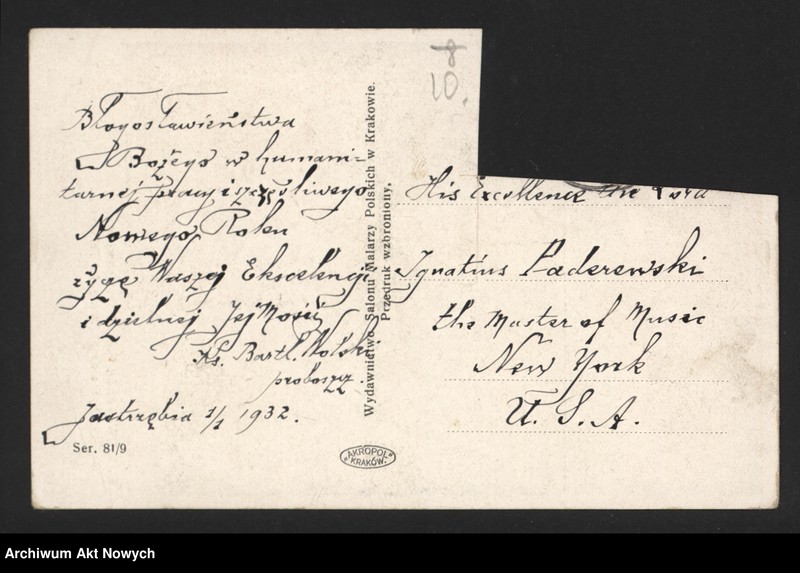 8
10.
Błogosławieństwa
Bożego w humani-
tarnej pracy i szczęśliwego
Nowego Roku
życzę Waszej Ekscelencji
i dzielnej Jej Mości
Ks. Bartł. Wolski
proboszcz.
Jastrzębia 1/1 1932.
Ser. 81/9
Wydawnictwo Salonu Malarzy Polskich w Krakowie.
Przedruk wzbroniony.
"AKROPOL"
KRAKÓW.
His Excellence the Lord
Ignatius Paderewski
the Master of Music
New York
U. S. A.
Archiwum Akt Nowych